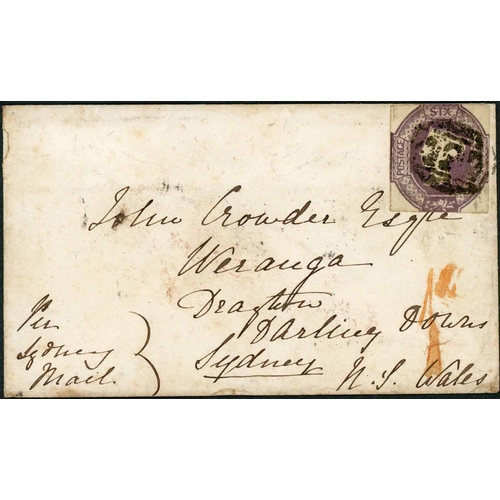 SIX
POSTAGE
John Crowder Esqre
Weranga
Drayton
Darling Downs
Sydney
N. S. Wales
Per
Sydney
Mail